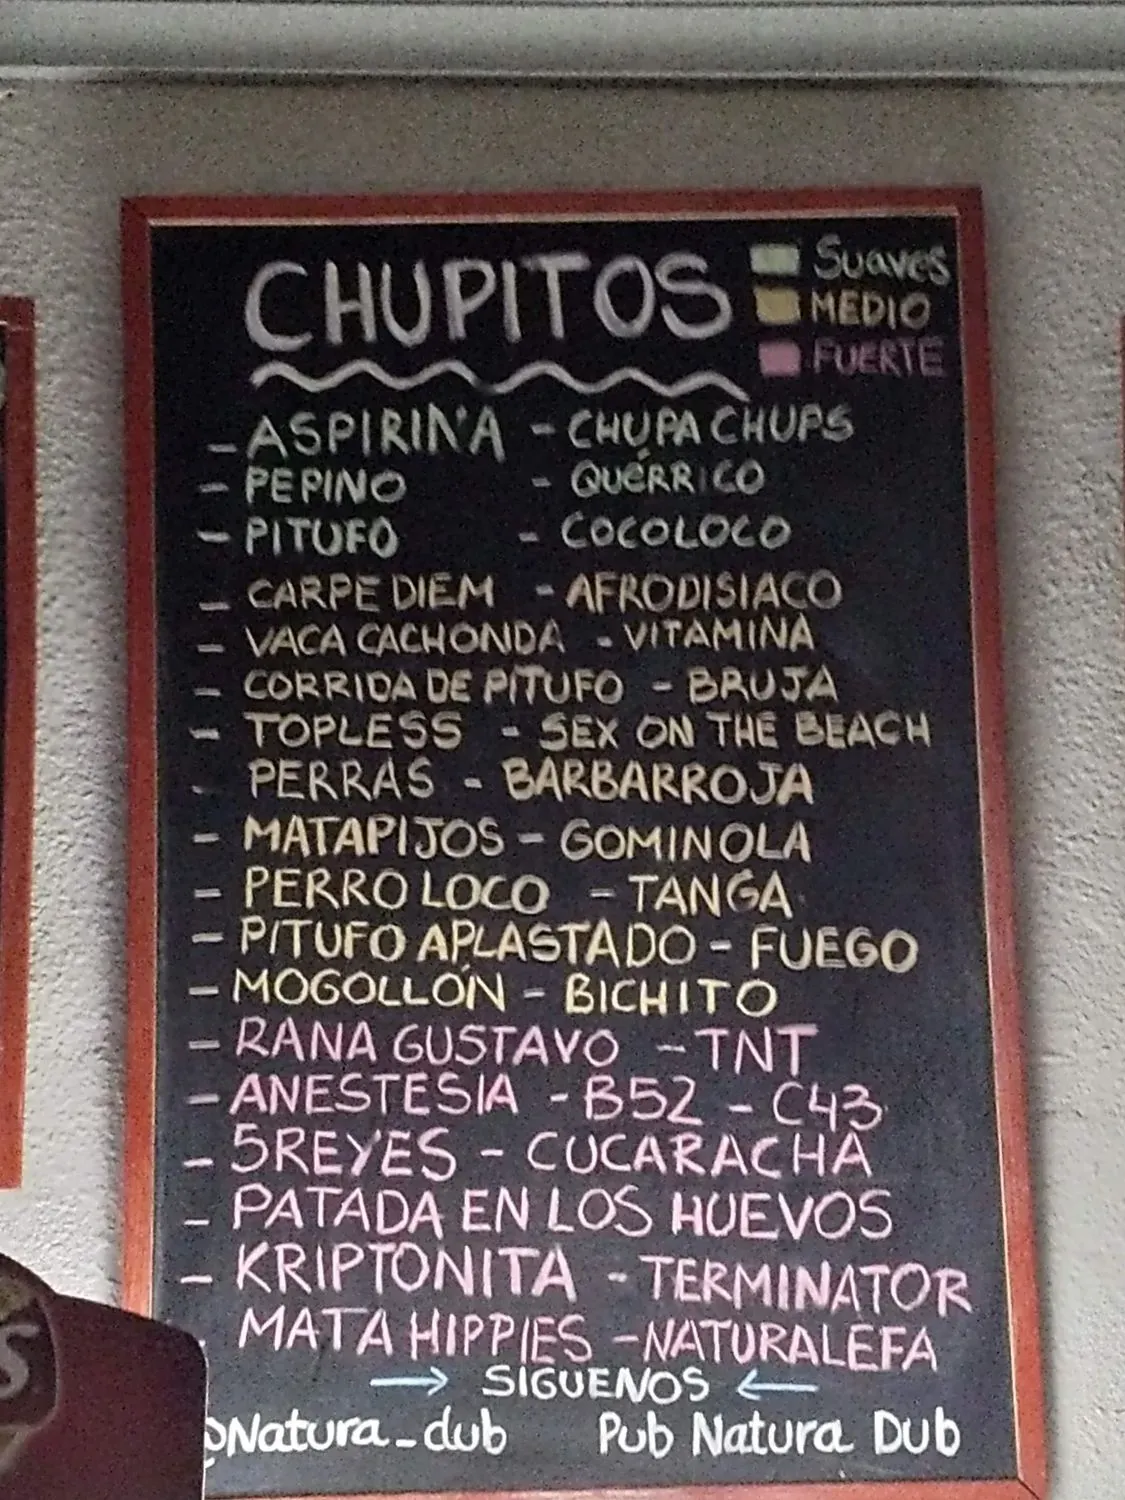 CHUPITOS
Suaves
MEDIO
FUERTE
- ASPIRINA - CHUPA CHUPS
- PEPINO - QUÉRRICO
- PITUFO - COCOLOCO
- CARPE DIEM - AFRODISIACO
- VACA CACHONDA - VITAMINA
- CORRIDA DE PITUFO - BRUJA
- TOPLESS - SEX ON THE BEACH
- PERRAS - BARBARROJA
- MATAPIJOS - GOMINOLA
- PERRO LOCO - TANGA
- PITUFO APLASTADO - FUEGO
- MOGOLLÓN - BICHITO
- RANA GUSTAVO - TNT
- ANESTESIA - B52 - C43
- 5REYES - CUCARACHA
- PATADA EN LOS HUEVOS
- KRIPTONITA - TERMINATOR
MATA HIPPIES - NATURALEFA
→ SIGUENOS ←
@Natura_dub Pub Natura Dub